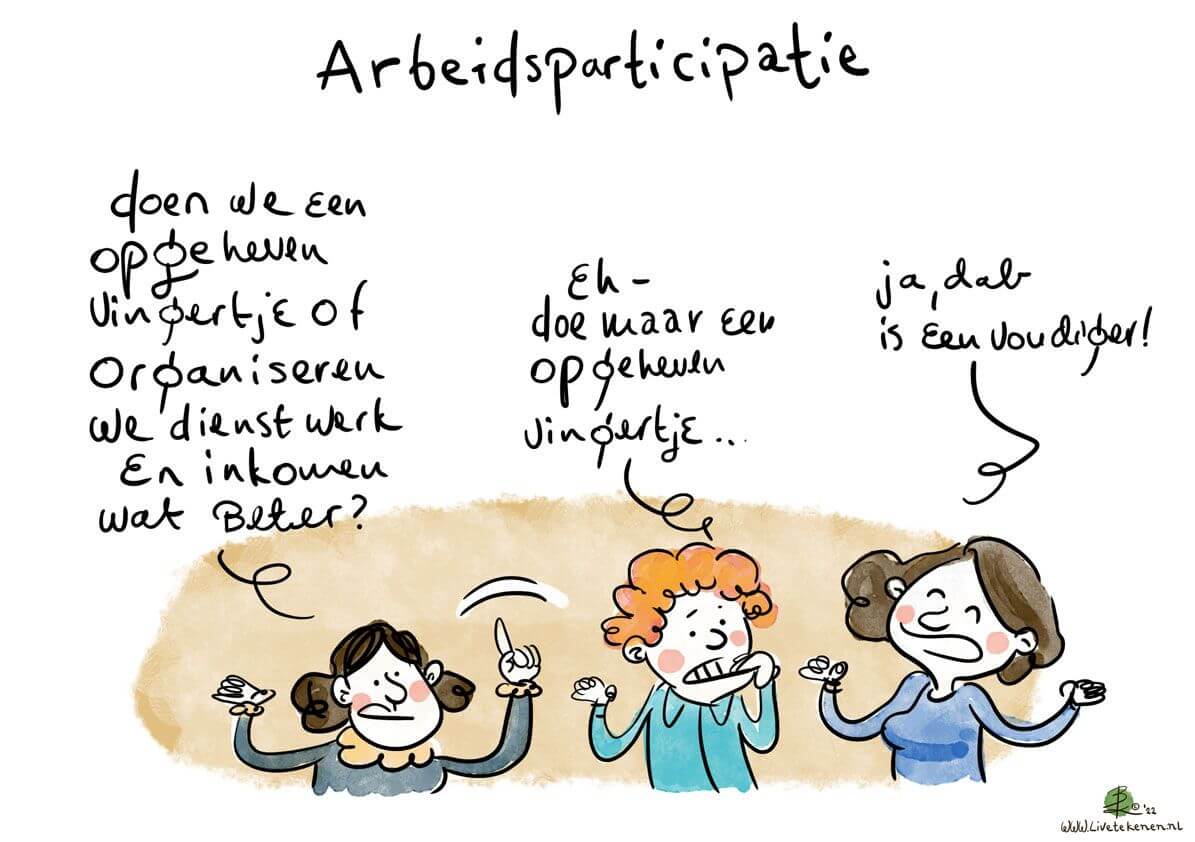 Arbeidsparticipatie
doen we een
opgeheven
vingertje of
organiseren
we dienst werk
En inkomen
wat Beter?
Eh -
doe maar een
opgeheven
vingertje...
ja, dat
is eenvoudiger!
© '22
www.Livetekenen.nl